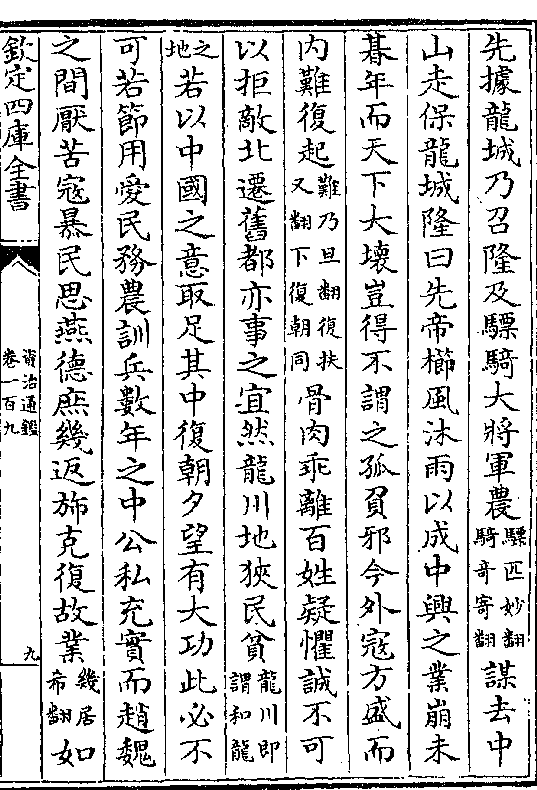 先據龍城乃召隆及驃騎大將軍農驃匹妙翻騎奇寄翻謀去中
山走保龍城隆曰先帝櫛風沐雨以成中興之業崩未
朞年而天下大壞豈得不謂之孤負邪今外寇方盛而
内難復起難乃旦翻復扶又翻下復朝同骨肉乖離百姓疑懼誠不可
以拒敵北遷舊都亦事之宜然龍川地狹民貧龍川即謂和龍
之地若以中國之意取足其中復朝夕望有大功此必不
可若節用愛民務農訓兵數年之中公私充實而趙魏
之間厭苦寇暴民思燕德庶幾返斾克復故業幾居希翻如
欽定四庫全書
資治通鑑
卷一百九
九